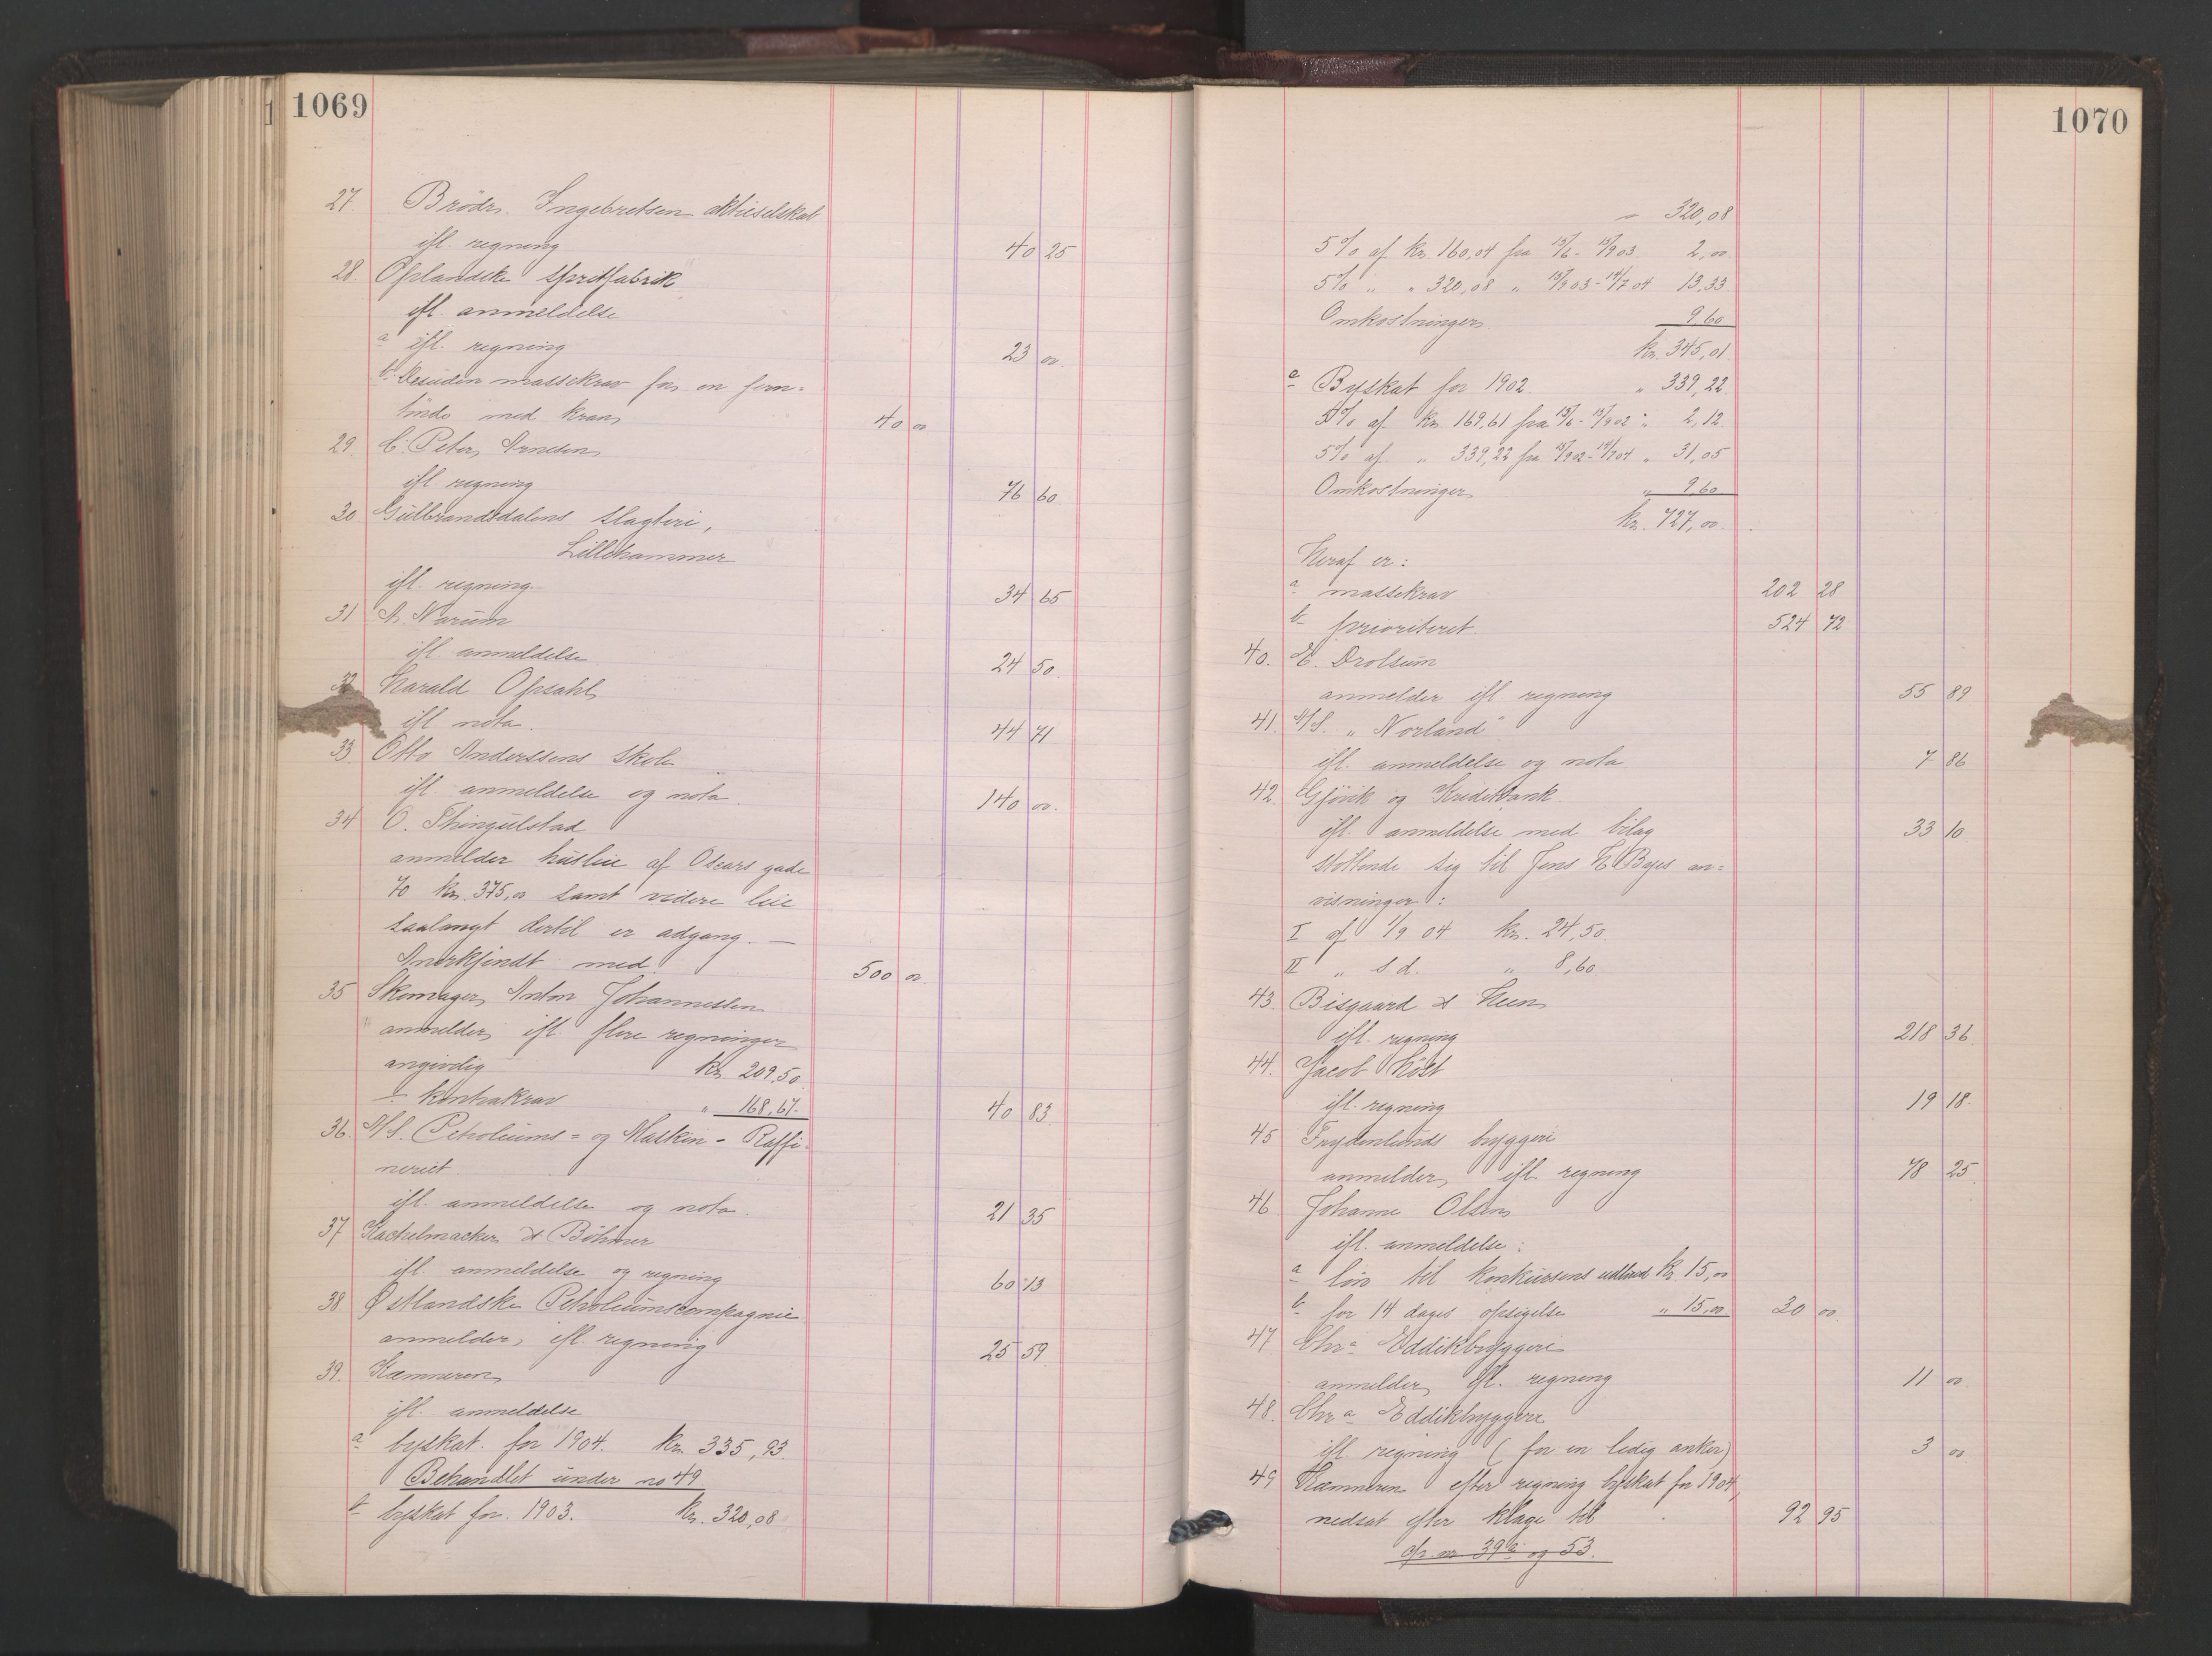 1069
27. Brödr. Ingebretsen aktieselskab
ifl. regning 40 25
28. Oplandske spritfabrik
ifl. anmeldelse
a ifl. regning 23 00
b. Desuden massekrav for en fem=
tönde med kran 40 00
29. C. Peter Arnesen
ifl. regning 76 60
30. Gulbrandsdalens slagteri,
Lillehammer
ifl. regning 34 65
31 A. Narum
ifl. anmeldelse 24 50.
32 Harald Opsahl
ifl. nota 44 71
33 Otto Anderssens skole
ifl. anmeldelse og nota. 140 00.
34 O. Thingulstad
anmelder husleie af Oscars gade
70 kr. 375,00 samt videre leie
saalangt dertil er adgang. —
Anerkjendt med 500 00.
35 Skomager Anton Johannessen
anmelder ifl. flere regninger
angivelig kr. 209,50.
÷ kontrakrav " 168,67. 40 83
36. A/S. Petroleums= og Maskin- Raffi-
neriet
ifl. anmeldelse og nota. 21 35
37 Kachelmacker & Böhmer
ifl. anmeldelse og regning 60 13
38 Østlandske Petroleumscompagnie
anmelder, ifl. regning 25 59
39. Kæmneren
ifl. anmeldelse
a byskat. for 1904. kr. 335,93.
Behandlet under no 49
b byskat for. 1903. kr. 320,08
1070
320,08
5% af kr. 160,04 fra 15/6 - 15/9 03. 2,00
5% " " 320,08 " 15/9 03 - 14/7 04 13,33
Omkostninger 9,60
kr. 345,01
c Byskat for 1902. " 339,22
5% af kr. 169,61 fra 15/6 - 15/9 02 " 2,12.
5% af " 339,22 fra 15/9 02 - 14/7 04 " 31,05
Omkostninger " 9,60
kr. 727,00.
Heraf er:
a massekrav 202 28
b prioriteret 524 72
40. E. Drolsum
anmelder ifl regning 55 89
41. A/S. „Norland"
ifl. anmeldelse og nota 7 86
42. Gjövik og Kreditbank.
ifl. anmeldelse med bilag 33 10
støttende sig til Jens H. Byes an=
visninger:
I af 1/9 04 kr. 24,50
II " s.d. " 8,60
43. Bisgaard & Heen
ifl. regning 218 36
44. Jacob Höst
ifl. regning 19 18.
45 Frydenlunds byggeri
anmelder, ifl. regning 78 25
46 Johanne Olsen
ifl. anmeldelse:
a lön til konkursens udbrud kr. 15,00
b for 14 dages opsigelse " 15,00 30 00.
47 Chr.a Eddikbryggeri
anmelder ifl. regning 11 00
48. Chr.a Eddikbryggeri
ifl. regning (for en ledig anker) 3 00
49 Kæmneren efter regning byskat for 1904,
nedsat efter klage til 92 95
cfr. no 39a og 53.